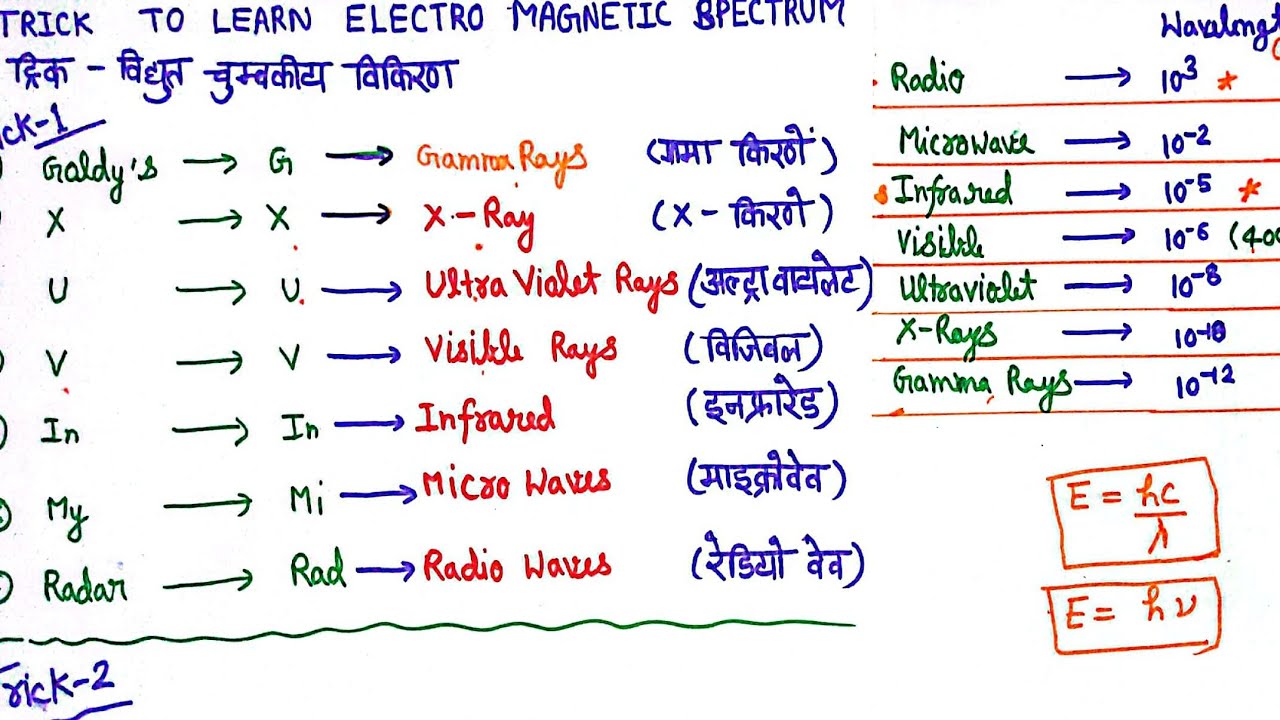 TRICK TO LEARN ELECTRO MAGNETIC SPECTRUM
ट्रिक - विद्युत चुम्बकीय विकिरण
ck-1
Galdy's → G → Gamma Rays (गामा किरणें)
X → X → X-Ray (X-किरणे)
U → U → Ultra Violet Rays (अल्ट्रा वायलेट)
V → V → Visible Rays (विजिबल)
In → In → Infrared (इनफ्रारेड)
My → Mi → Micro Waves (माइक्रोवेव)
Radar → Rad → Radio Waves (रेडियो वेव)
Trick-2
Wavelengt
Radio → 10³ *
Microwave → 10⁻²
Infrared → 10⁻⁵ *
Visible → 10⁻⁶ (400
Ultraviolet → 10⁻⁸
X-Rays → 10⁻¹⁰
Gamma Rays → 10⁻¹²
E = hc/λ
E = hν